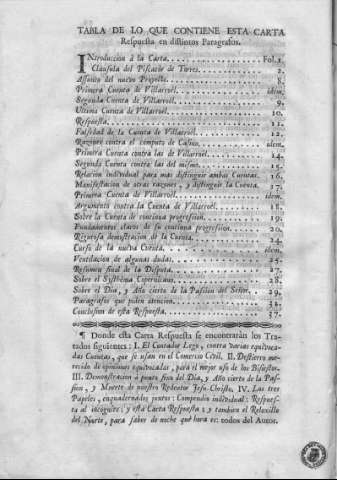 TABLA DE LO QUE CONTIENE ESTA CARTA
Respuesta en distintos Paragrafos.
INtroduccion à la Carta. Fol. 1.
Clausula del Piscator de Torres. 2.
Assunto del nuevo 8.
Primera Cuenta de Villarroèl. idem.
Segunda Cuenta de Villarroèl. 9.
Ultima Cuenta de Villarroèl. 10.
Respuesta. 11.
Falsedad de la Cuenta de Villarroèl. 12.
Razones contra el computo de Casini. idem.
Primera Cuenta contra las de Villarroèl. 14.
Segunda Cuenta contra las del mismo. 15.
Relacion individual para mas distinguir ambas Cuentas. 16.
Manifestacion de otras razones, y distinguir la Cuenta. 17.
Primera Cuenta de Villarroèl. idem.
Argumento contra la Cuenta de Villarroèl. 18.
Sobre la Cuenta de continua progression. 19.
Fundamentos claros de su continua progression. 20.
Rigurosa demonstracion de la Cuenta. 24.
Curso de la nueva Cuenta. idem.
Ventilacion de algunas dudas. 25.
Resumen final de la Disputa. 27.
Sobre el Systhèma Copernicano. 28.
Sobre el Dia, y Año cierto de la Passion del Señor. 29.
Paragrafos que piden atencion. 32.
Conclusion de esta Respuesta. 37.
¶ Donde esta Carta Respuesta se encontraràn los Tra-
tados siguientes: I. El Contador Lego, contra varias equivoca-
das Cuentas, que se usan en el Comercio Civil. II. Destierro me-
recido de opiniones equivocadas, para el mejor uso de los Bisiestos.
III. Demonstracion à punto fixo del Dia, y Año cierto de la Pas-
sion, y Muerte de nuestro Redentor Jesu-Christo. IV. Las tres
Papeles, enquadernados juntos: Compendio individual: Respues-
ta al incognito: y esta Carta Respuesta; y tambien el Reloxillo
del Norte, para saber de noche què hora es: todos del Autor.